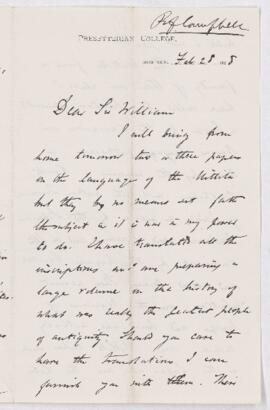 Prof Campbell
PRESBYTERIAN COLLEGE,
Feb 28 1888
Dear Sir William
I will bring from
home tomorrow two or three papers
on the language of the Hittites
but they by no means set forth
the subject as it is now in my power
to do. I have translated all the
inscriptions and am preparing a
large volume on the history of
what was really the greatest people
of antiquity. Should you care to
have the translations I can
furnish you with them. Their